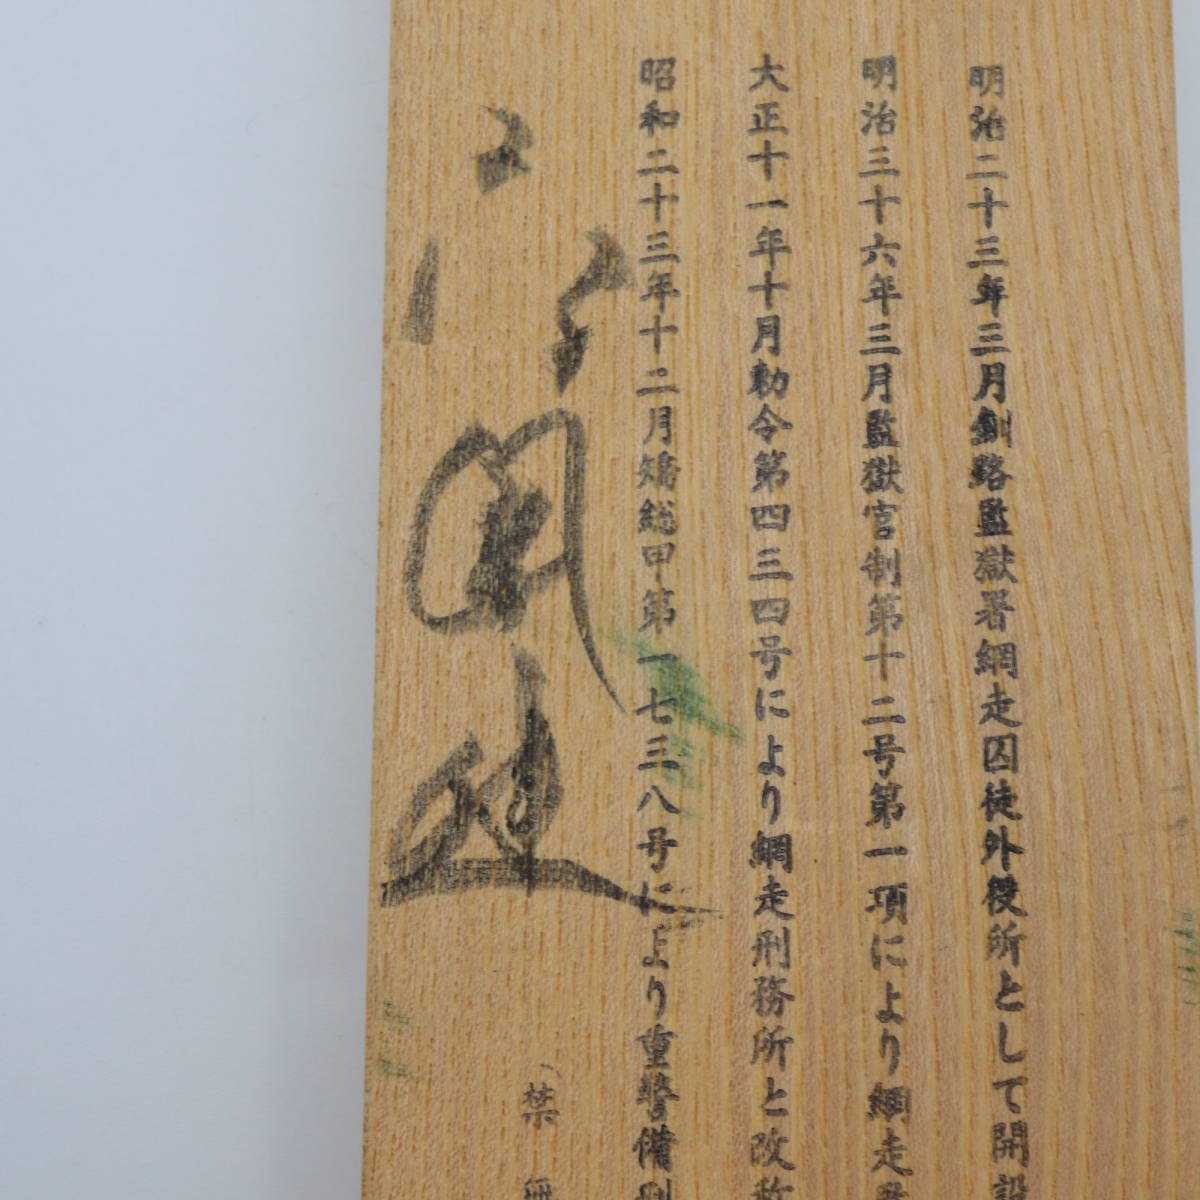 明治二十三年三月釧路監獄署網走囚徒外役所として開設
明治三十六年三月監獄官制第十二号第一項により網走監
大正十一年十月勅令第四三四号により網走刑務所と改称
昭和二十三年十二月矯総甲第一七三八号により重警備刑
（禁無